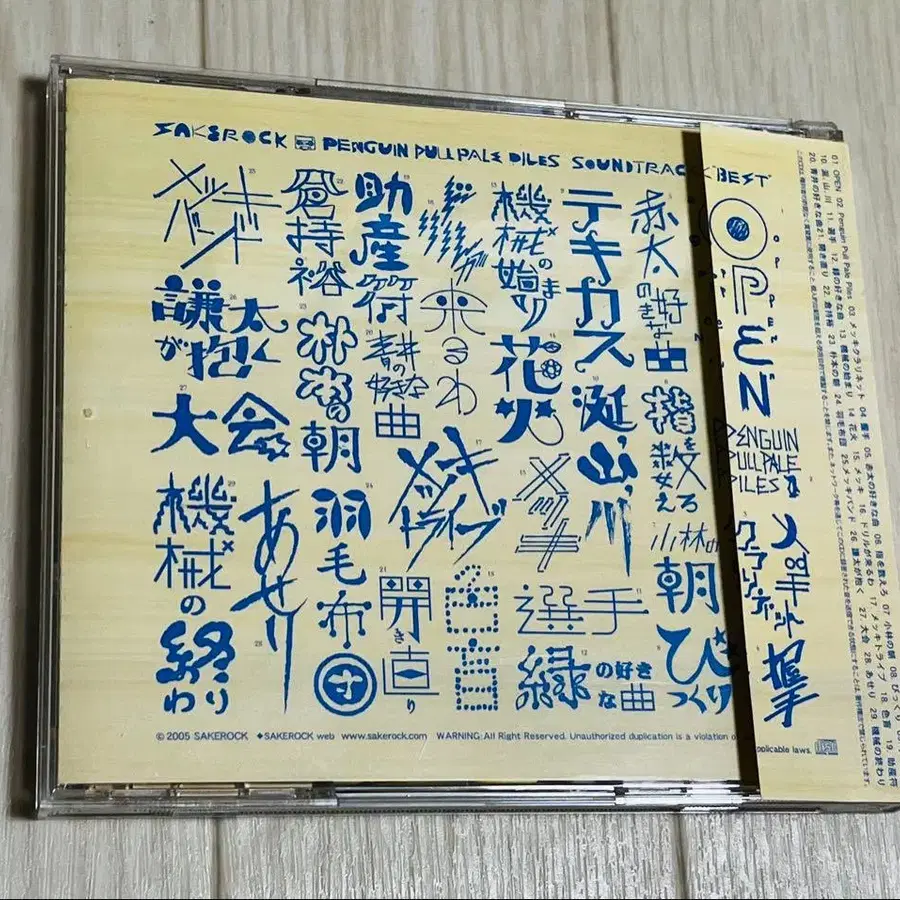 SAKEROCK PENGUIN PULL PALE PILES SOUNDTRACK "BEST"
OPEN
PENGUIN PULL PALE PILES
メッキクラリネット
握手
赤太の好きな曲
指を数えろ
小林の朝
びっくり
テキカス
誕.山.川
選手
緑の好きな曲
機械の始まり
花火
メッキ
ドリルが来るわ
メッキドライブ
色盲
助産符
青井の好きな曲
開き直り
倉持裕
朴本の朝
羽毛布団
メッキバンド
謙太が抱く
大会
あせり
機械の終わり
© 2005 SAKEROCK ◆SAKEROCK web www.sakerock.com WARNING: All Right Reserved. Unauthorized duplication is a violation of applicable laws.
01. OPEN 02. Penguin Pull Pale Piles 03. メッキクラリネット 04. 握手 05. 赤太の好きな曲 06. 指を数えろ 07. 小林の朝 08. びっくり
10. 誕.山.川 11. 選手 12. 緑の好きな曲 13. 機械の始まり 14. 花火 15. メッキ 16. ドリルが来るわ 17. メッキドライブ 18. 色盲 19. 助産符
20. 青井の好きな曲 21. 開き直り 22. 倉持裕 23. 朴本の朝 24. 羽毛布団 25. メッキバンド 26. 謙太が抱く 27. 大会 28. あせり 29. 機械の終わり